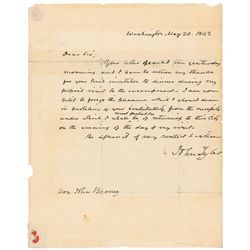 Washington May 20. 1842
Dear Sir,
Your letter reached me yesterday
morning and I have to return my thanks
for your kind invitation to dinner during my
proposed visit to the encampment. I am com-
pelled to forego the pleasure which I should derive
in partaking of your hospitality from the necessity
most probably
under which I shall be of returning to this City
on the evening of the day of my visit.
Be assured of my respect &
John Tyler
Hon John